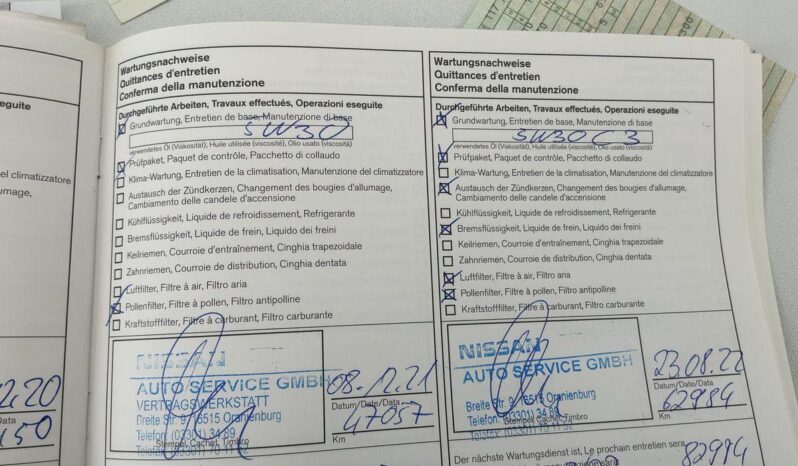 eseguite
el climatizzatore
umage,
2.20
150
Wartungsnachweise
Quittances d'entretien
Conferma della manutenzione
Durchgeführte Arbeiten, Travaux effectués, Operazioni eseguite
Grundwartung, Entretien de base, Manutenzione di base
5W30
verwendetes Öl (Viskosität), Huile utilisée (viscosité), Olio usato (viscosità)
Prüfpaket, Paquet de contrôle, Pacchetto di collaudo
Klima-Wartung, Entretien de la climatisation, Manutenzione del climatizzatore
Austausch der Zündkerzen, Changement des bougies d'allumage,
Cambiamento delle candele d'accensione
Kühlflüssigkeit, Liquide de refroidissement, Refrigerante
Bremsflüssigkeit, Liquide de frein, Liquido dei freini
Keilriemen, Courroie d'entraînement, Cinghia trapezoidale
Zahnriemen, Courroie de distribution, Cinghia dentata
Luftfilter, Filtre à air, Filtro aria
Pollenfilter, Filtre à pollen, Filtro antipolline
Kraftstofffilter, Filtre à carburant, Filtro carburante
NISSAN
AUTO SERVICE GMBH
VERTRAGSWERKSTATT
Breite Str. 9, 16515 Oranienburg
Telefon: (03301) 34 89
Stempel, Cachet, Timbro
08.12.21
Datum/Date/Data
47057
Km
Wartungsnachweise
Quittances d'entretien
Conferma della manutenzione
Durchgeführte Arbeiten, Travaux effectués, Operazioni eseguite
Grundwartung, Entretien de base, Manutenzione di base
5W30 C3
verwendetes Öl (Viskosität), Huile utilisée (viscosité), Olio usato (viscosità)
Prüfpaket, Paquet de contrôle, Pacchetto di collaudo
Klima-Wartung, Entretien de la climatisation, Manutenzione del climatizzatore
Austausch der Zündkerzen, Changement des bougies d'allumage,
Cambiamento delle candele d'accensione
Kühlflüssigkeit, Liquide de refroidissement, Refrigerante
Bremsflüssigkeit, Liquide de frein, Liquido dei freini
Keilriemen, Courroie d'entraînement, Cinghia trapezoidale
Zahnriemen, Courroie de distribution, Cinghia dentata
Luftfilter, Filtre à air, Filtro aria
Pollenfilter, Filtre à pollen, Filtro antipolline
Kraftstofffilter, Filtre à carburant, Filtro carburante
NISSAN
AUTO SERVICE GMBH
Breite Str. 9, 16515 Oranienburg
Telefon: (03301) 34 89
Stempel, Cachet, Timbro
23.08.22
Datum/Date/Data
62984
Km
Der nächste Wartungsdienst ist, Le prochain entretien sera,
82984